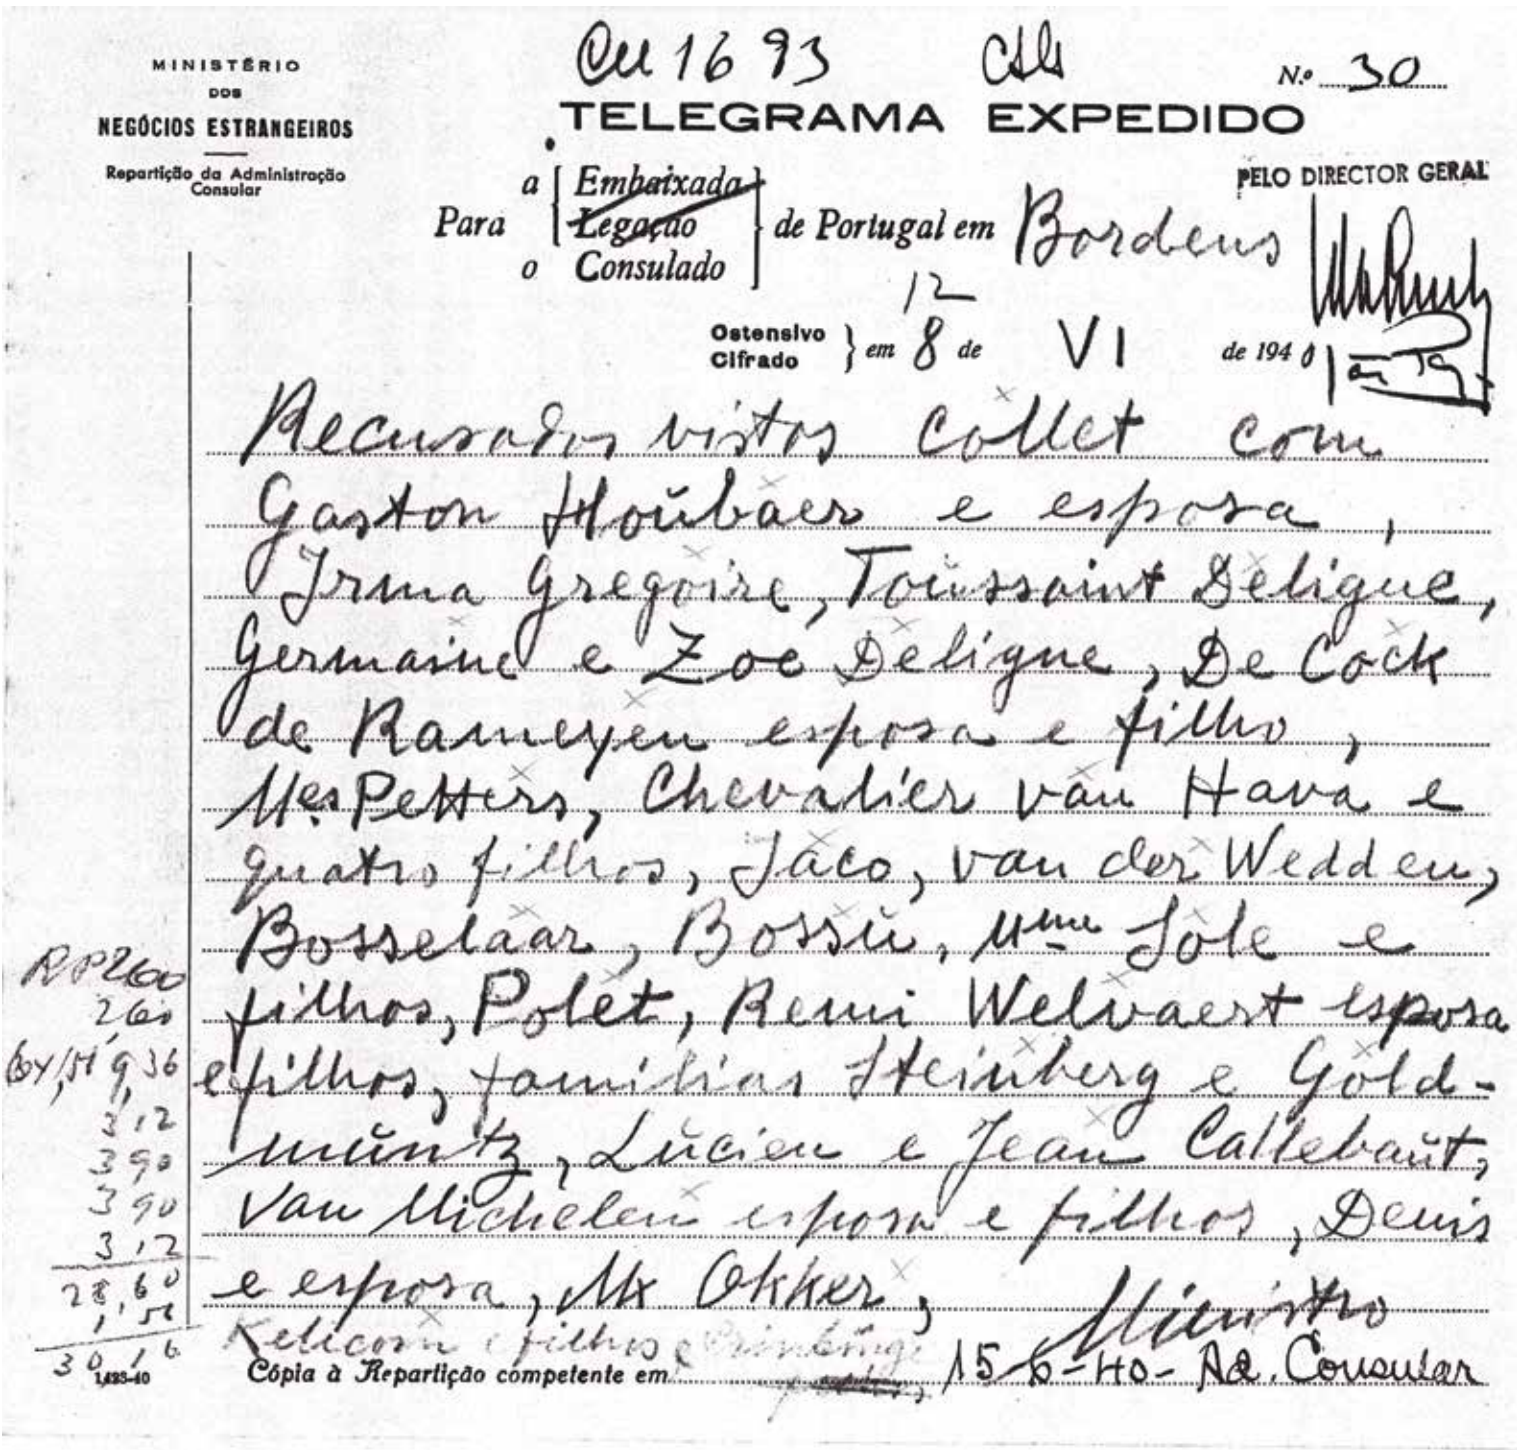 CU 1693
N.º 30
MINISTÉRIO
DOS
NEGÓCIOS ESTRANGEIROS
Repartição da Administração
Consular
TELEGRAMA EXPEDIDO
PELO DIRECTOR GERAL
Para a Embaixada
Legação
o Consulado
de Portugal em Bordeus
12
Ostensivo
Cifrado
em 8 de VI de 1940
Recusados vistos Collet com
Gaston Houbaer e esposa,
Irma Gregoire, Toussaint Deligue,
Germaine e Zoe Deligne, De Cock
de Rameyen esposa e filho,
Mes Petters, Chevalier van Hava e
quatro filhos, Jaco, van der Wedden,
Bosselaar, Bossu, Mme Jole e
filhos, Polet, Remi Welvaert esposa
e filhos, familias Steinberg e Gold-
muntz, Lucien e Jean Callebaut,
van Michelen esposa e filhos, Denis
e esposa, Mx Okker,
Kelicom e filhos e
Ministro
RP260
260
9,36
3,12
390
390
3,12
28,60
1,56
30,16
1.423-40
Cópia à Repartição competente em 15-6-40 - Ad. Consular